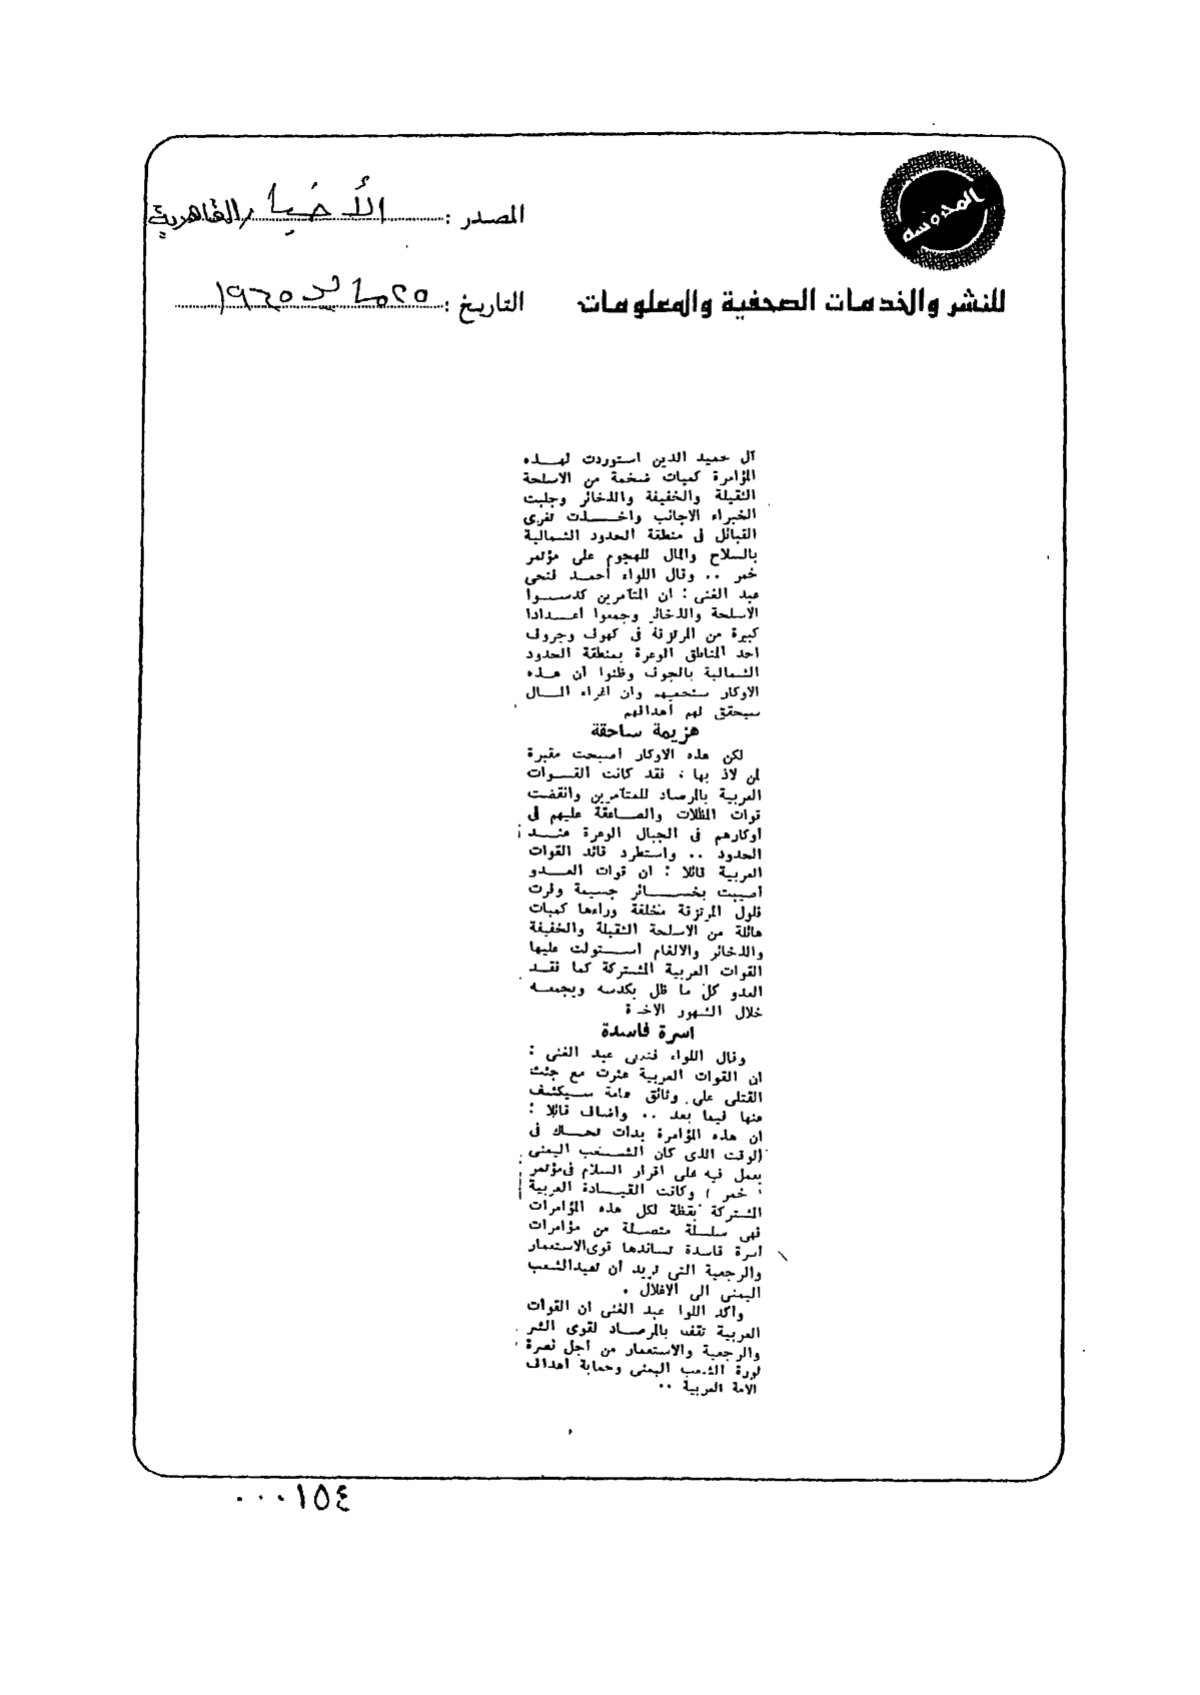 المدونسه
المصدر : الأخبار القاهرية
للنشر والخدمات الصحفية والمعلومات
التاريخ : ٢٥ مايو ١٩٦٥
آل حميد الدين استوردت لهذه
المؤامرة كميات ضخمة من الاسلحة
الثقيلة والخفيفة والذخائر وجلبت
الخبراء الاجانب واخذت تغرى
القبائل فى منطقة الحدود الشمالية
بالسلاح والمال للهجوم على مؤتمر
خمر .. وقال اللواء أحمد فتحى
عبد الغنى : ان المتآمرين كدسوا
الاسلحة والذخائر وجمعوا اعدادا
كبيرة من المرتزقة فى كهوف وجروف
احد المناطق الوعرة بمنطقة الحدود
الشمالية بالجوف وظنوا أن هذه
الاوكار ستحميهم وان اغراء المال
سيحقق لهم أهدافهم
هزيمة ساحقة
لكن هذه الاوكار اصبحت مقبرة
لمن لاذ بها ، فقد كانت القوات
العربية بالمرصاد للمتآمرين وانقضت
قوات المظلات والصاعقة عليهم فى
أوكارهم فى الجبال الوعرة عند
الحدود .. واستطرد قائد القوات
العربية قائلا : ان قوات العدو
اصيبت بخسائر جسيمة وفرت
فلول المرتزقة مخلفة وراءها كميات
هائلة من الاسلحة الثقيلة والخفيفة
والذخائر والالغام استولت عليها
القوات العربية المشتركة كما فقد
العدو كل ما ظل يكدسه ويجمعه
خلال الشهور الاخيرة
اسرة فاسدة
وقال اللواء فتحى عبد الغنى :
ان القوات العربية عثرت مع جثث
القتلى على وثائق هامة سيكشف
عنها فيما بعد .. واضاف قائلا :
ان هذه المؤامرة بدات تحاك فى
الوقت الذى كان الشعب اليمنى
يعمل فيه على اقرار السلام فى مؤتمر
( خمر ) وكانت القيادة العربية
المشتركة يقظة لكل هذه المؤامرات
فهى سلسلة متصلة من مؤامرات
اسرة فاسدة تساندها قوى الاستعمار
والرجعية التى تريد أن تعيد الشعب
اليمنى الى الاغلال .
واكد اللوا عبد الغنى ان القوات
العربية تقف بالمرصاد لقوى الشر
والرجعية والاستعمار من أجل نصرة
ثورة الشعب اليمنى وحماية أهداف
الامة العربية ..
٠٠٠١٥٤